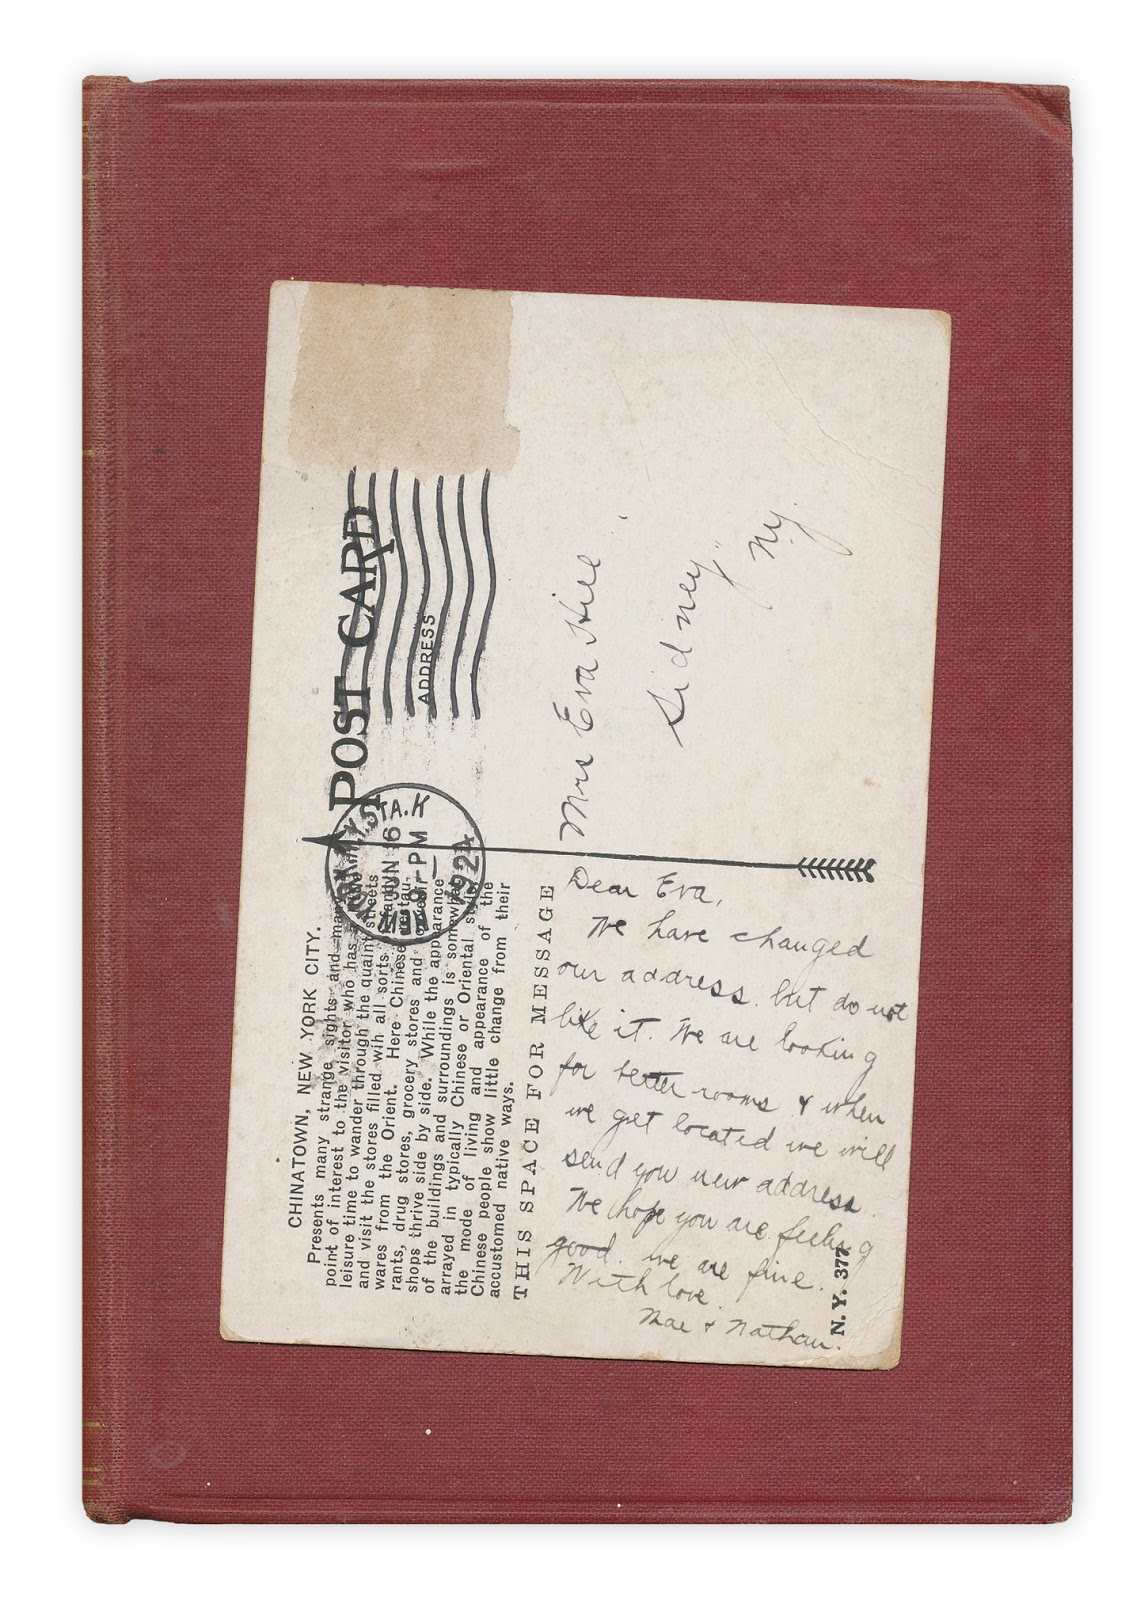 POST CARD
ADDRESS
CHINATOWN, NEW YORK CITY.
Presents many strange sights and many
point of interest to the visitor who has a
leisure time to wander through the quaint streets
and visit the stores filled wih all sorts
wares from the Orient. Here Chinese restau-
rants, drug stores, grocery stores and
shops thrive side by side. While the appearance
of the buildings and surroundings is somewhat
arrayed in typically Chinese or Oriental style,
the mode of living and appearance of the
Chinese people show little change from their
accustomed native ways.
THIS SPACE FOR MESSAGE
STA.K
JUN 16
9-PM
1924
Dear Eva,
We have changed
our address. but do not
like it. We are looking
for better rooms & when
we get located we will
send you new address.
We hope you are feeling
good. we are fine.
With love
Mae & Nathan.
N. Y. 377
Mrs Eva Hill
Sidney
N.Y.